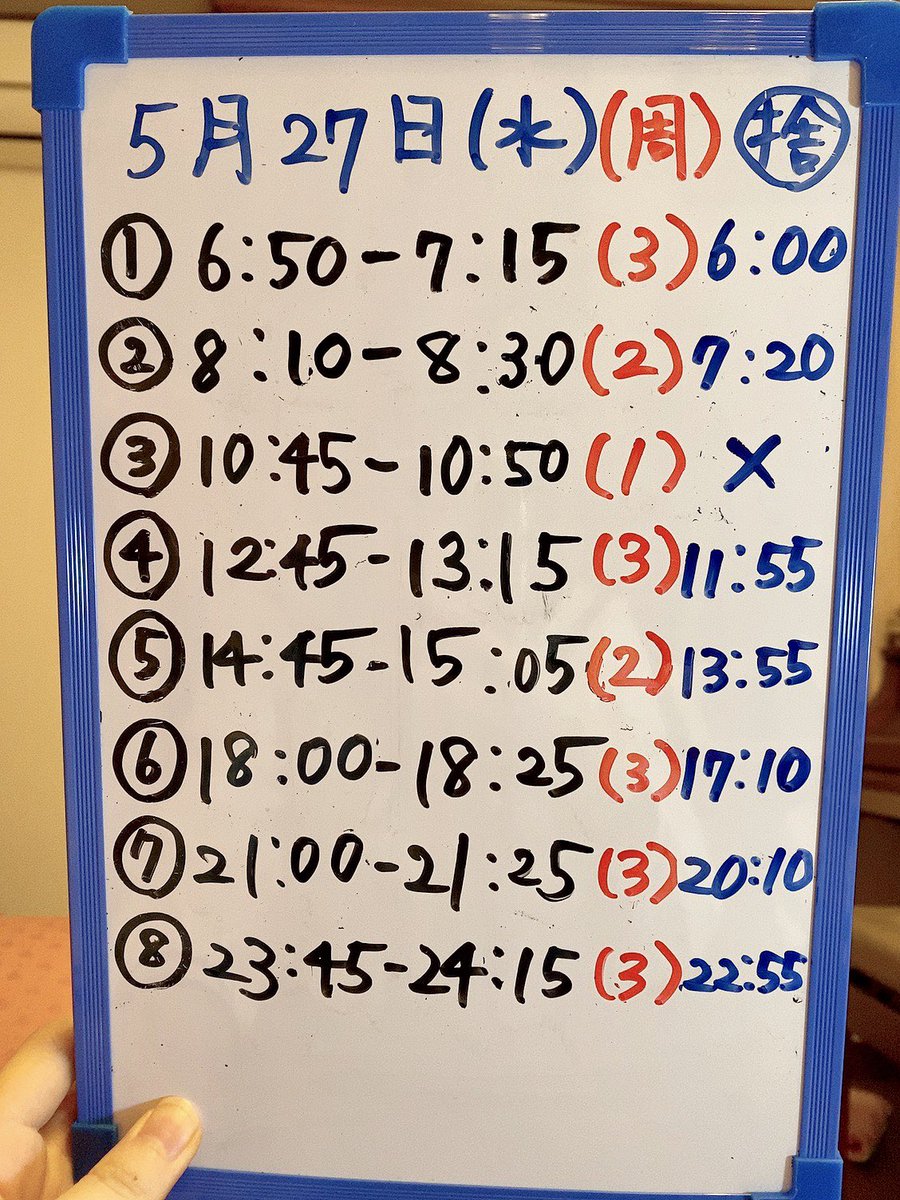 5月27日(水)(周)㊢捨
① 6:50-7:15 (3) 6:00
② 8:10-8:30 (2) 7:20
③ 10:45-10:50 (1) ×
④ 12:45-13:15 (3) 11:55
⑤ 14:45-15:05 (2) 13:55
⑥ 18:00-18:25 (3) 17:10
⑦ 21:00-21:25 (3) 20:10
⑧ 23:45-24:15 (3) 22:55